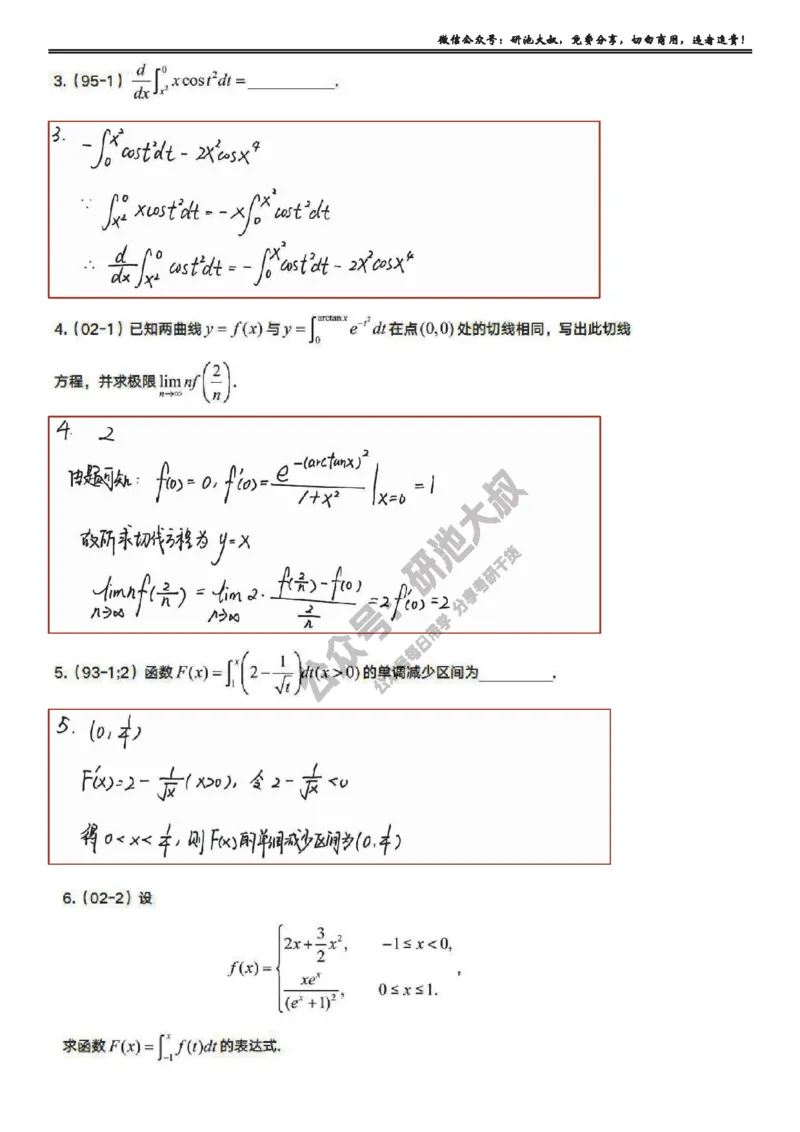 微信公众号：研池大叔，免费分享，切勿商用，违者追责！
3.（95-1）$\frac{d}{dx}\int_{x^2}^{0} x\cos t^2 dt=$____________.
3. $-\int_0^{x^2}\cos t^2 dt - 2x^2\cos x^4$
∵ $\int_{x^2}^{0} x\cos t^2 dt = -x\int_0^{x^2}\cos t^2 dt$
∴ $\frac{d}{dx}\int_{x^2}^{0}\cos t^2 dt = -\int_0^{x^2}\cos t^2 dt - 2x^2\cos x^4$
4.（02-1）已知两曲线$y=f(x)$与$y=\int_0^{\arctan x} e^{-t^2}dt$在点$(0,0)$处的切线相同，写出此切线
方程，并求极限$\lim_{n\to\infty} nf\left(\frac{2}{n}\right)$.
4. 2
由题可知：$f(0)=0, f'(0)=\frac{e^{-(\arctan x)^2}}{1+x^2}\Big|_{x=0}=1$
故所求切线方程为 $y=x$
$\lim_{n\to\infty} nf(\frac{2}{n})=\lim_{n\to\infty} 2\cdot\frac{f(\frac{2}{n})-f(0)}{\frac{2}{n}}=2f'(0)=2$
公众号：研池大叔
公众号每日常学 分享考研干货
5.（93-1;2）函数$F(x)=\int_1^x\left(2-\frac{1}{\sqrt{t}}\right)dt(x>0)$的单调减少区间为__________.
5. $(0,\frac{1}{4})$
$F'(x)=2-\frac{1}{\sqrt{x}}(x>0)$，令 $2-\frac{1}{\sqrt{x}}<0$
得 $0<x<\frac{1}{4}$，则$F(x)$的单调减少区间为$(0,\frac{1}{4})$
6.（02-2）设
$f(x)=\begin{cases}2x+\frac{3}{2}x^2, & -1\le x<0,\\ \frac{xe^x}{(e^x+1)^2}, & 0\le x\le 1.\end{cases}$,
求函数$F(x)=\int_{-1}^{x} f(t)dt$的表达式.